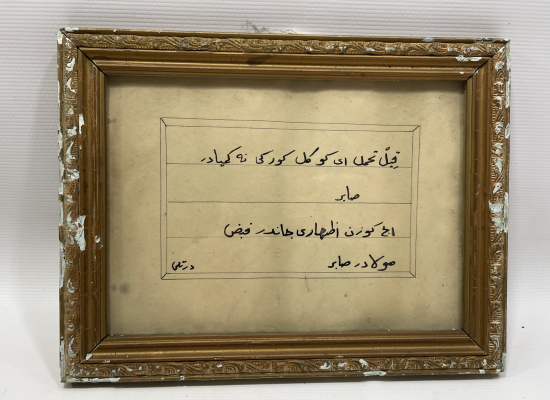 قیل تحمل ای کوکل کورکی نه کیمیادر
صابر
اچ کوزن اظهاری جاندر فیض
مولادر صابر درتلی